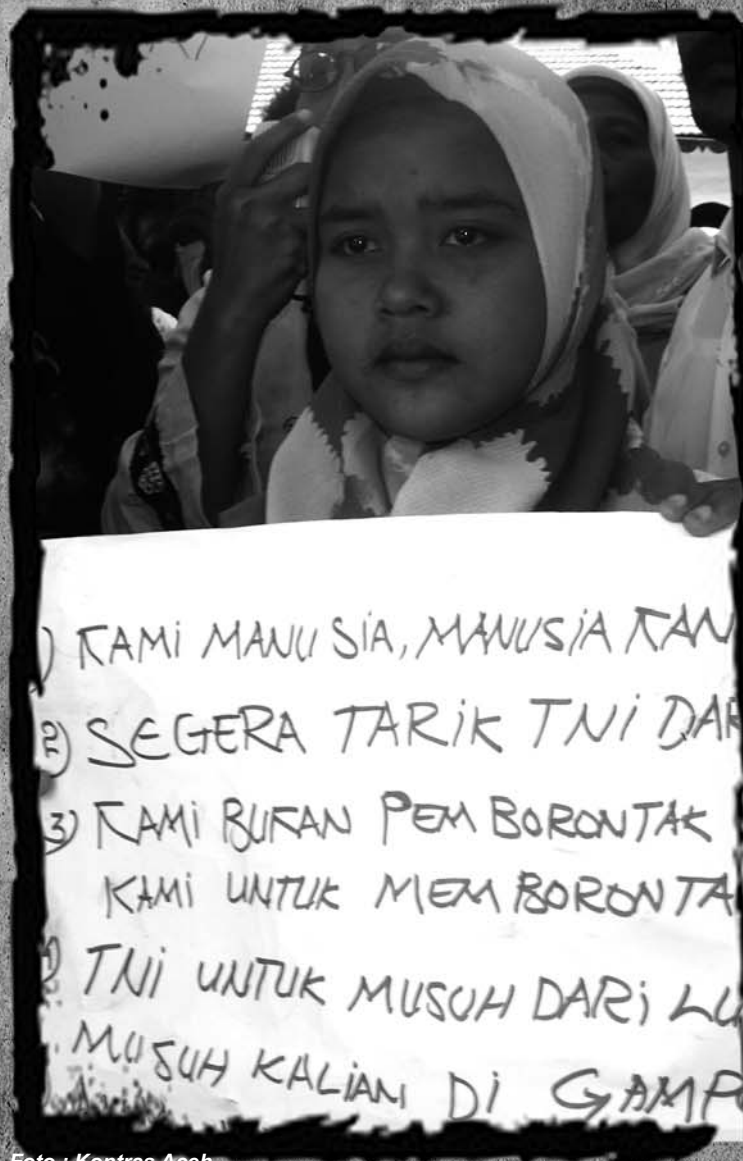 1) KAMI MANUSIA, MANUSIA KAN
2) SEGERA TARIK TNI DAR
3) KAMI BUKAN PEMBORONTAK
KAMI UNTUK MEMBORONTA
TNI UNTUK MUSUH DARI LU
MUSUH KALIAN DI GAMPO
Foto : Kontras Aceh